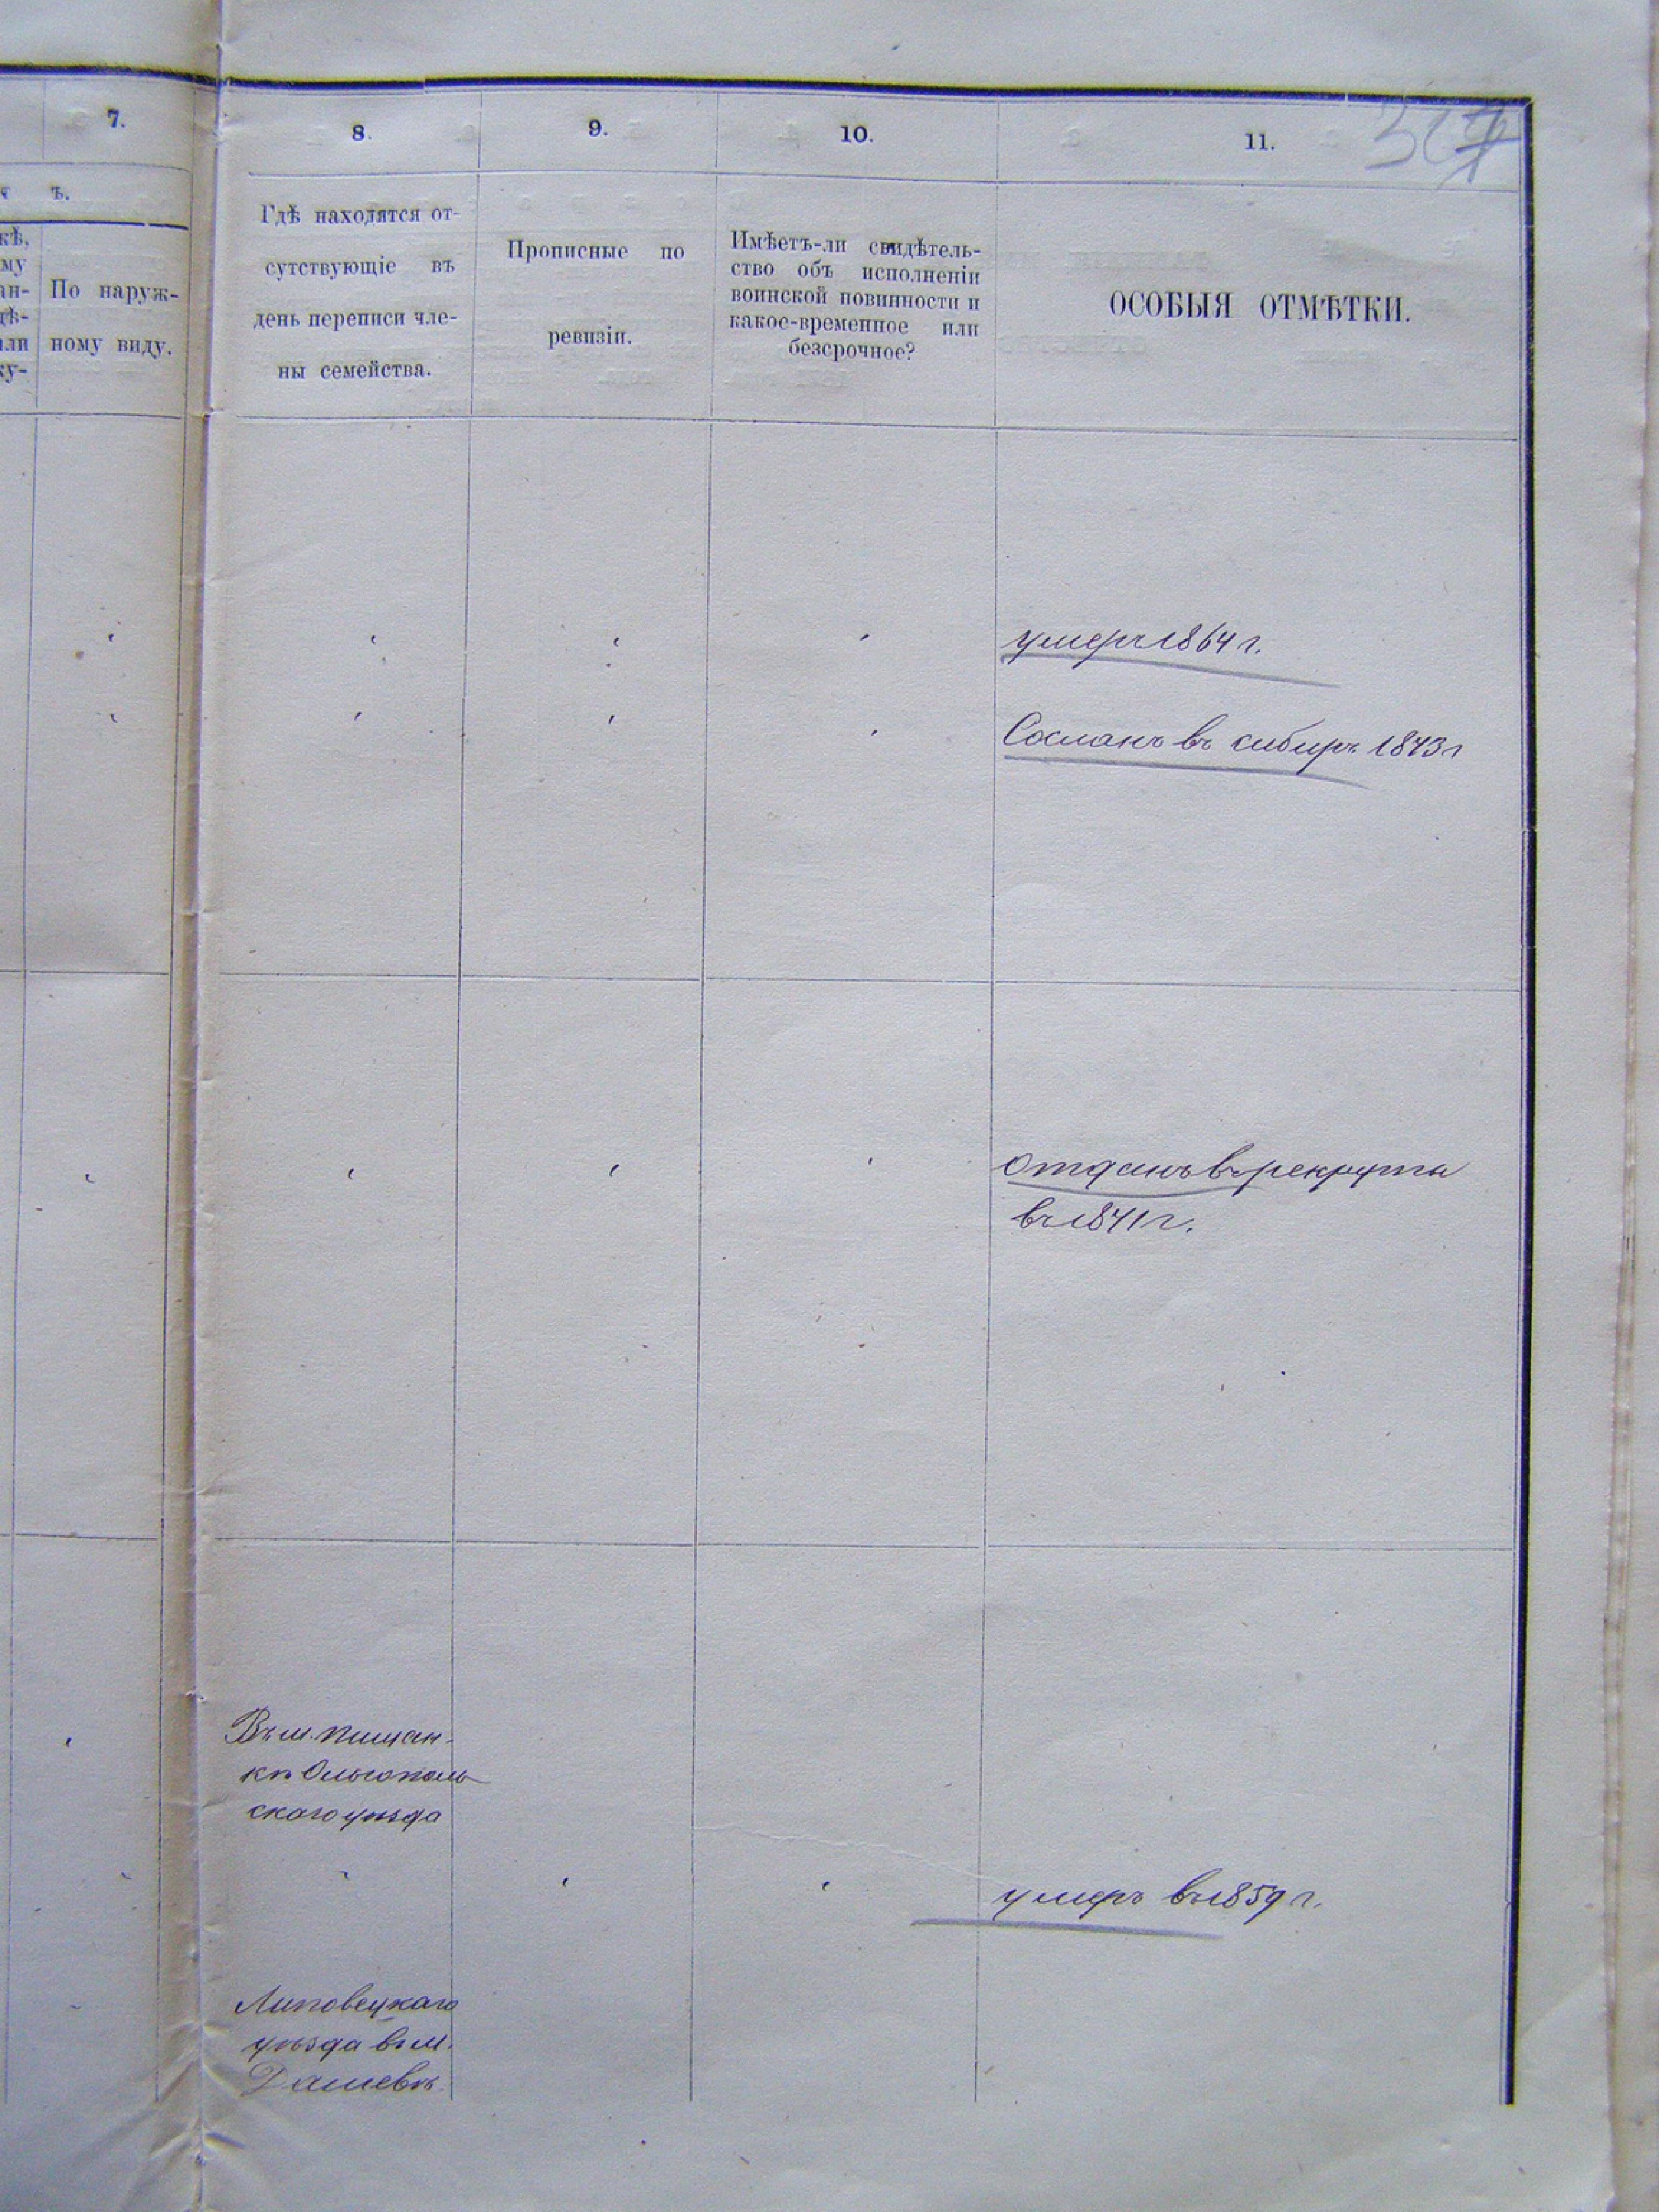 7.
8.
9.
10.
11.
ъ.
кѣ,
му
ан-
дѣ-
али
ку-
По наруж-
ному виду.
Гдѣ находятся от-
сутствующіе въ
день переписи чле-
ны семейства.
Прописные по
ревизіи.
Имѣетъ-ли свидѣтель-
ство объ исполненіи
воинской повинности и
какое-временное или
безсрочное?
ОСОБЫЯ ОТМѢТКИ.
умеръ 1864 г.
Сосланъ въ сибирь 1843 г
отданъ въ рекруты
въ 1841 г.
Въ м. Пищан-
кѣ Ольгополь
скаго уѣзда
умеръ въ 1859 г.
Липовецкаго
уѣзда въ м.
Дашевѣ